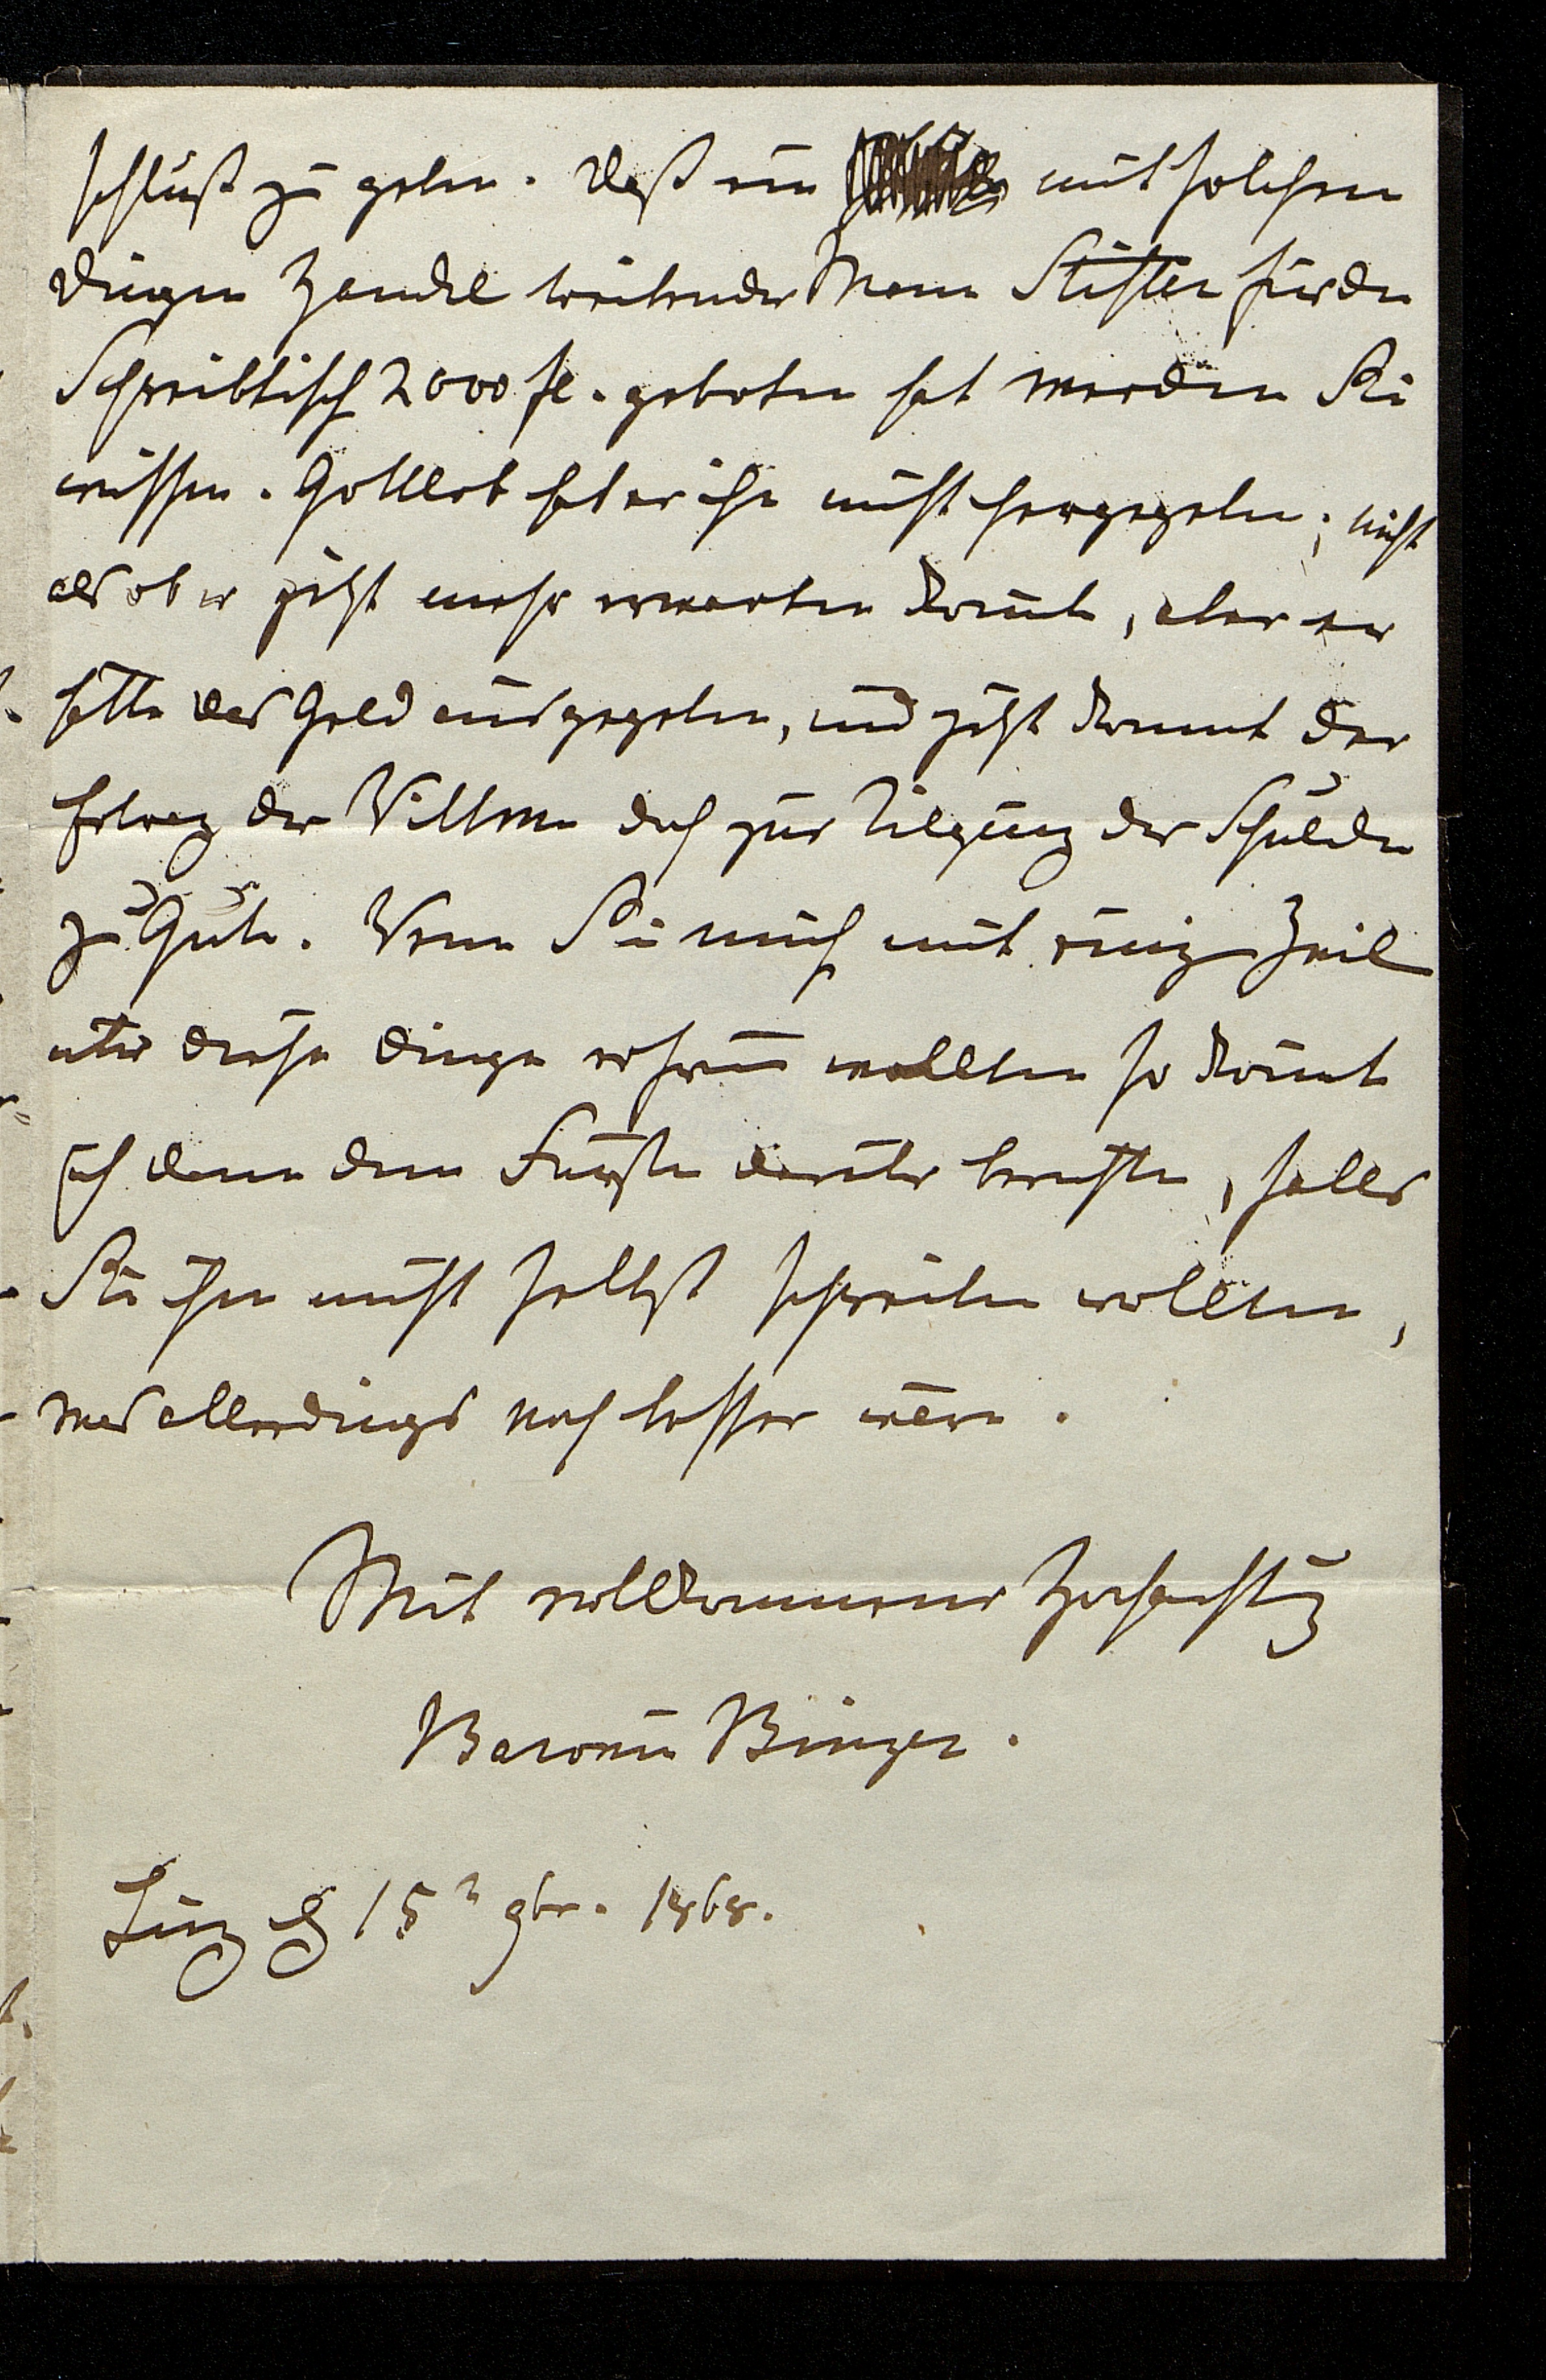 schluß zu geben. Daß ein mit solchen
Dingen Handel treibender Mann Stifter für den
Schreibtisch 2000 fl. geboten hat werden Sie
wissen. Gottlob hat er ihn nicht hergegeben; nicht
als ob er jetzt mehr erwarten könnte, aber er
hätte das Geld ausgegeben, und jetzt kommt der
Ertrag der Wittwe doch zur Tilgung der Schulden
zu Gute. Wenn Sie mich mit einig Zeil
über diese Dinge erfreun wollten so könnte
ich dann dem Fürsten darüber berichten, falls
Sie ihm nicht selbst schreiben wollten,
was allerdings noch besser wäre.
Mit vollkommener Hochachtung
Baronin Binzer.
Linz d 15t 9br. 1868.